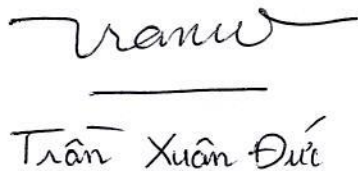 Trần Xuân Đức